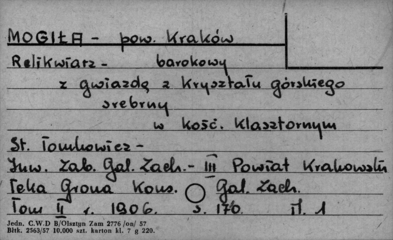 MOGIŁA - pow. Kraków
Relikwiarz - barokowy
z gwiazdą z Kryształu górskiego
srebrny
w kość. Klasztornym
St. Tomkowicz -
Inw. Zab. Gal. Zach. - III Powiat Krakowski
Teka Grona Kons. Gal. Zach.
Tom II r. 1906. s. 170. il. 1
Jedn. C.W.D B/Olsztyn Zam 2776 /on/ 57
Bitk. 2563/57 10.000 szt. karton kl. 7 g 220.